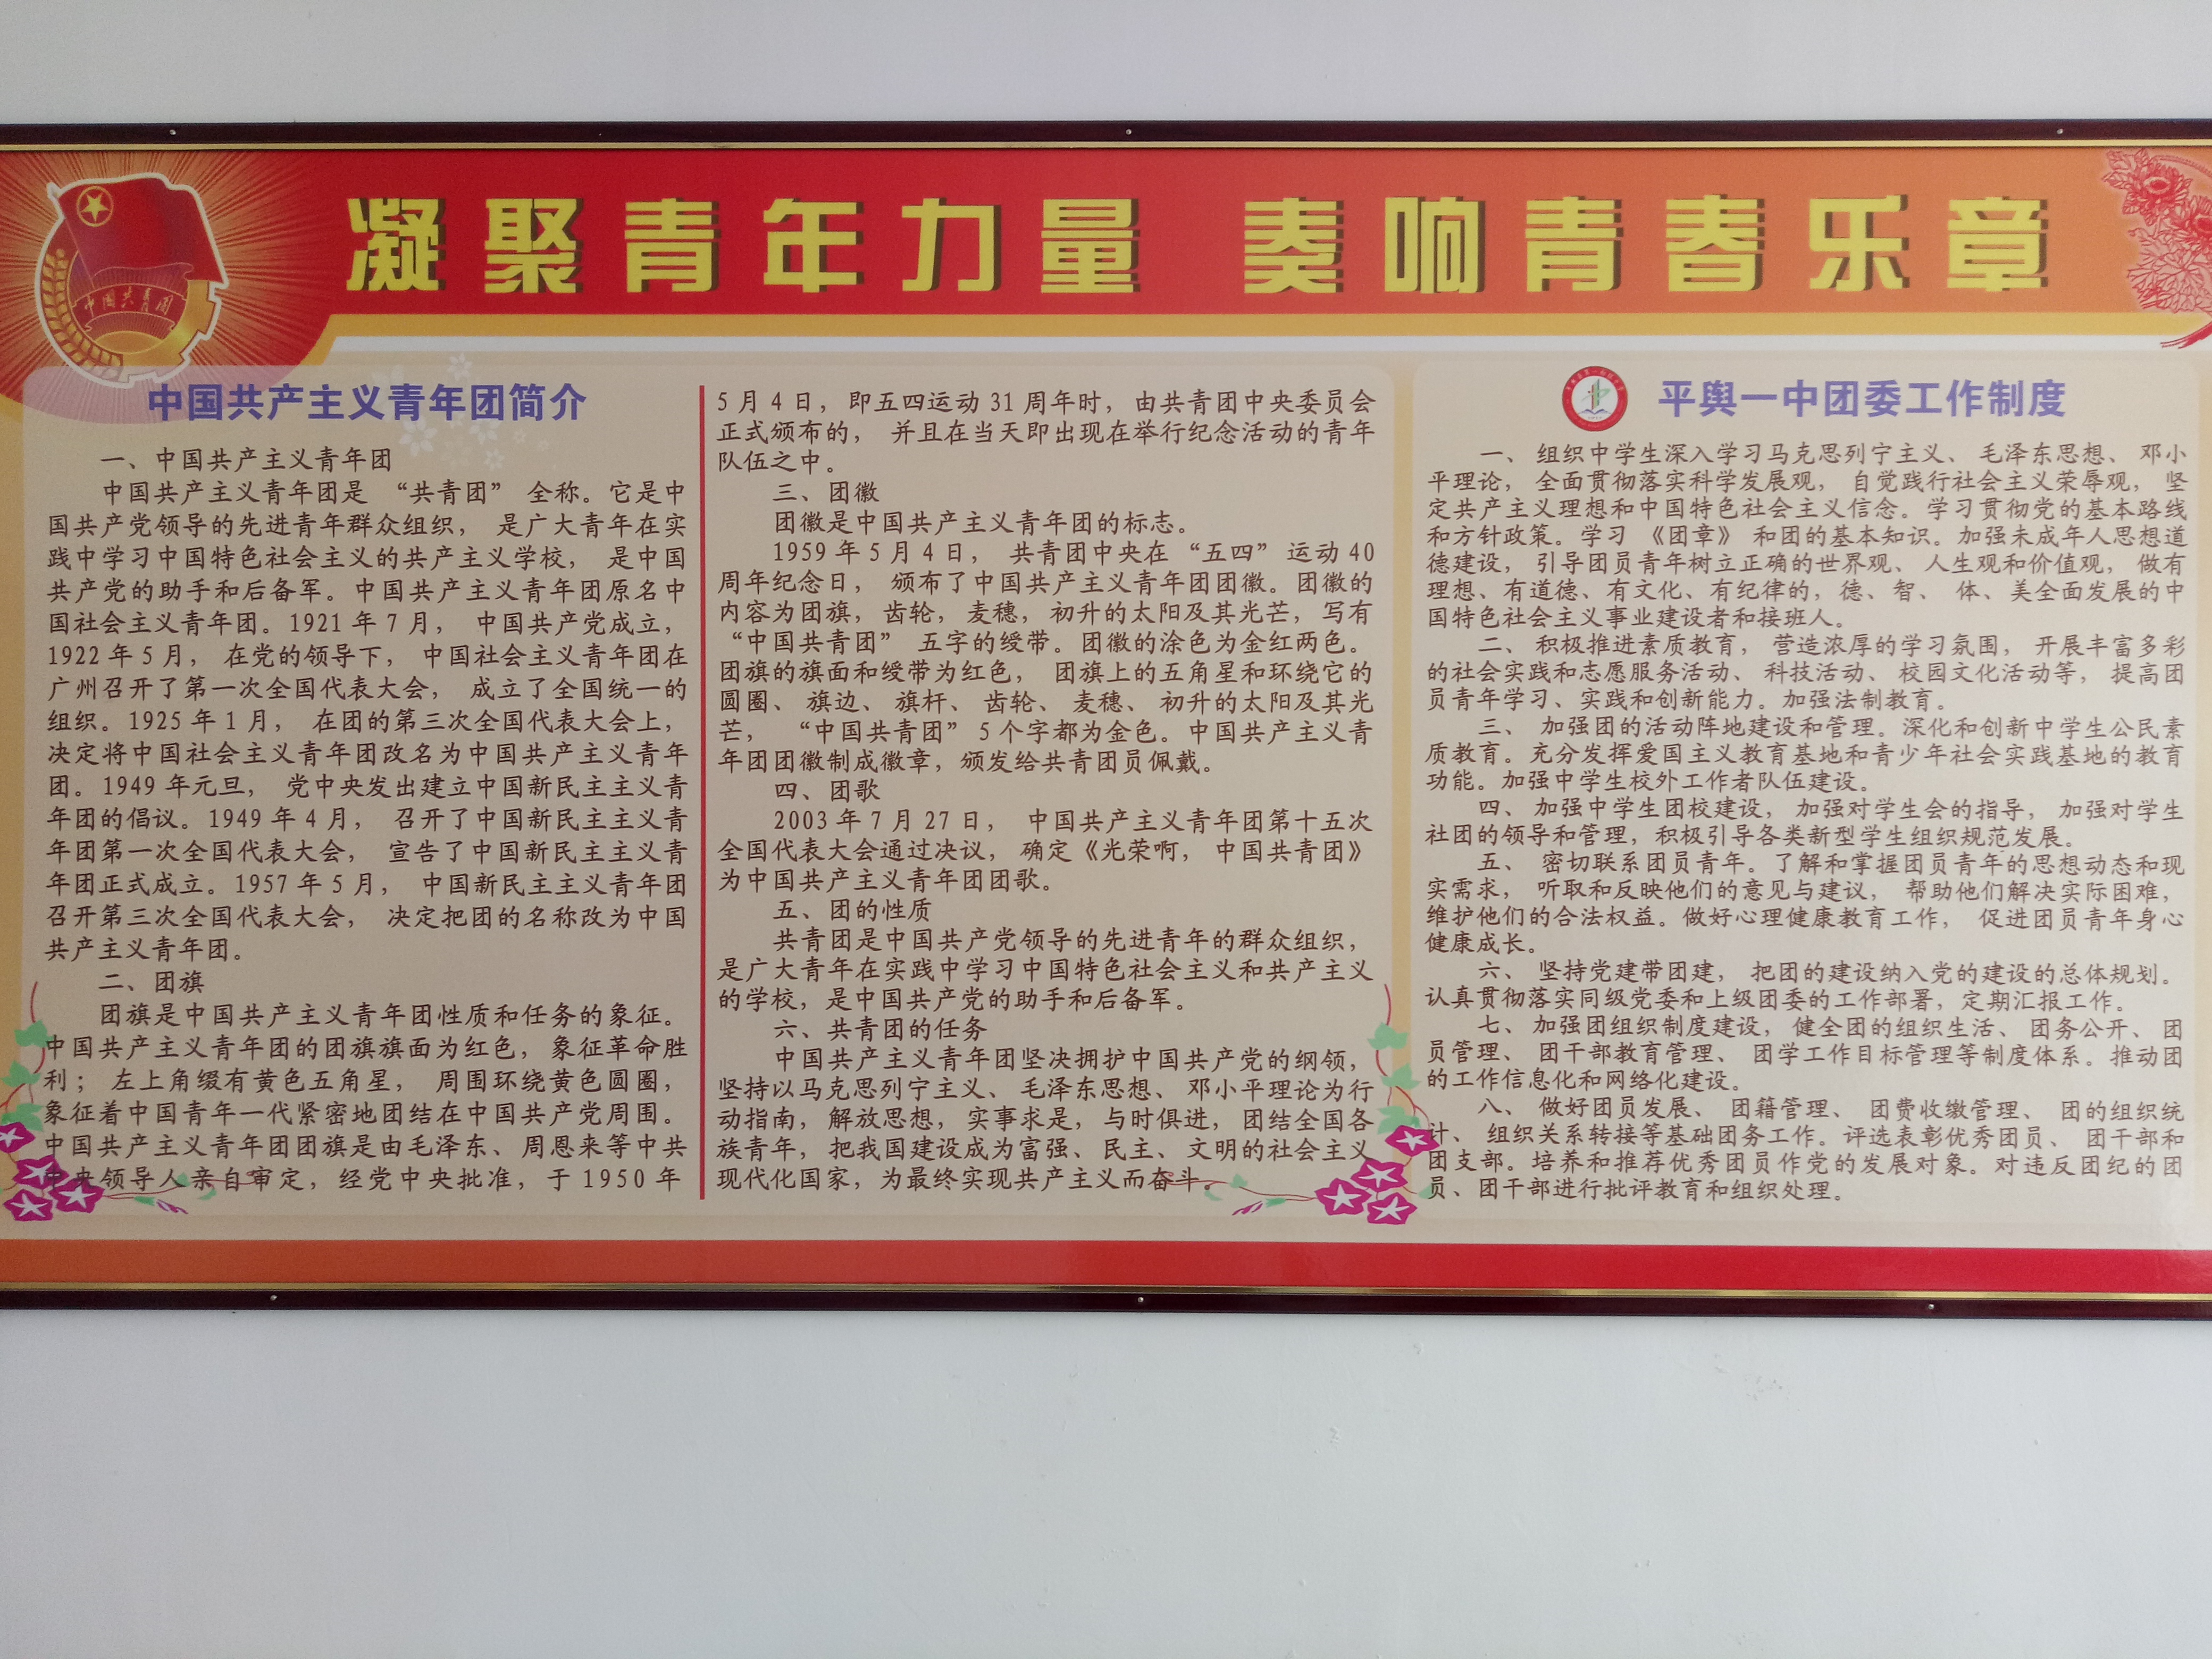 凝聚青年力量 奏响青春乐章
中国共青团
中国共产主义青年团简介
一、中国共产主义青年团
中国共产主义青年团是“共青团”全称。它是中
国共产党领导的先进青年群众组织，是广大青年在实
践中学习中国特色社会主义的共产主义学校，是中国
共产党的助手和后备军。中国共产主义青年团原名中
国社会主义青年团。1921年7月，中国共产党成立，
1922年5月，在党的领导下，中国社会主义青年团在
广州召开了第一次全国代表大会，成立了全国统一的
组织。1925年1月，在团的第三次全国代表大会上，
决定将中国社会主义青年团改名为中国共产主义青年
团。1949年元旦，党中央发出建立中国新民主主义青
年团的倡议。1949年4月，召开了中国新民主主义青
年团第一次全国代表大会，宣告了中国新民主主义青
年团正式成立。1957年5月，中国新民主主义青年团
召开第三次全国代表大会，决定把团的名称改为中国
共产主义青年团。
二、团旗
团旗是中国共产主义青年团性质和任务的象征。
中国共产主义青年团的团旗旗面为红色，象征革命胜
利；左上角缀有黄色五角星，周围环绕黄色圆圈，
象征着中国青年一代紧密地团结在中国共产党周围。
中国共产主义青年团团旗是由毛泽东、周恩来等中共
中央领导人亲自审定，经党中央批准，于1950年
5月4日，即五四运动31周年时，由共青团中央委员会
正式颁布的，并且在当天即出现在举行纪念活动的青年
队伍之中。
三、团徽
团徽是中国共产主义青年团的标志。
1959年5月4日，共青团中央在“五四”运动40
周年纪念日，颁布了中国共产主义青年团团徽。团徽的
内容为团旗，齿轮，麦穗，初升的太阳及其光芒，写有
“中国共青团”五字的绶带。团徽的涂色为金红两色。
团旗的旗面和绶带为红色，团旗上的五角星和环绕它的
圆圈、旗边、旗杆、齿轮、麦穗、初升的太阳及其光
芒，“中国共青团”5个字都为金色。中国共产主义青
年团团徽制成徽章，颁发给共青团员佩戴。
四、团歌
2003年7月27日，中国共产主义青年团第十五次
全国代表大会通过决议，确定《光荣啊，中国共青团》
为中国共产主义青年团团歌。
五、团的性质
共青团是中国共产党领导的先进青年的群众组织，
是广大青年在实践中学习中国特色社会主义和共产主义
的学校，是中国共产党的助手和后备军。
六、共青团的任务
中国共产主义青年团坚决拥护中国共产党的纲领，
坚持以马克思列宁主义、毛泽东思想、邓小平理论为行
动指南，解放思想，实事求是，与时俱进，团结全国各
族青年，把我国建设成为富强、民主、文明的社会主义
现代化国家，为最终实现共产主义而奋斗。
平舆一中团委工作制度
一、组织中学生深入学习马克思列宁主义、毛泽东思想、邓小
平理论，全面贯彻落实科学发展观，自觉践行社会主义荣辱观，坚
定共产主义理想和中国特色社会主义信念。学习贯彻党的基本路线
和方针政策。学习《团章》和团的基本知识。加强未成年人思想道
德建设，引导团员青年树立正确的世界观、人生观和价值观，做有
理想、有道德、有文化、有纪律的，德、智、体、美全面发展的中
国特色社会主义事业建设者和接班人。
二、积极推进素质教育，营造浓厚的学习氛围，开展丰富多彩
的社会实践和志愿服务活动、科技活动、校园文化活动等，提高团
员青年学习、实践和创新能力。加强法制教育。
三、加强团的活动阵地建设和管理。深化和创新中学生公民素
质教育。充分发挥爱国主义教育基地和青少年社会实践基地的教育
功能。加强中学生校外工作者队伍建设。
四、加强中学生团校建设，加强对学生会的指导，加强对学生
社团的领导和管理，积极引导各类新型学生组织规范发展。
五、密切联系团员青年。了解和掌握团员青年的思想动态和现
实需求，听取和反映他们的意见与建议，帮助他们解决实际困难，
维护他们的合法权益。做好心理健康教育工作，促进团员青年身心
健康成长。
六、坚持党建带团建，把团的建设纳入党的建设的总体规划。
认真贯彻落实同级党委和上级团委的工作部署，定期汇报工作。
七、加强团组织制度建设，健全团的组织生活、团务公开、团
员管理、团干部教育管理、团学工作目标管理等制度体系。推动团
的工作信息化和网络化建设。
八、做好团员发展、团籍管理、团费收缴管理、团的组织统
计、组织关系转接等基础团务工作。评选表彰优秀团员、团干部和
团支部。培养和推荐优秀团员作党的发展对象。对违反团纪的团
员、团干部进行批评教育和组织处理。